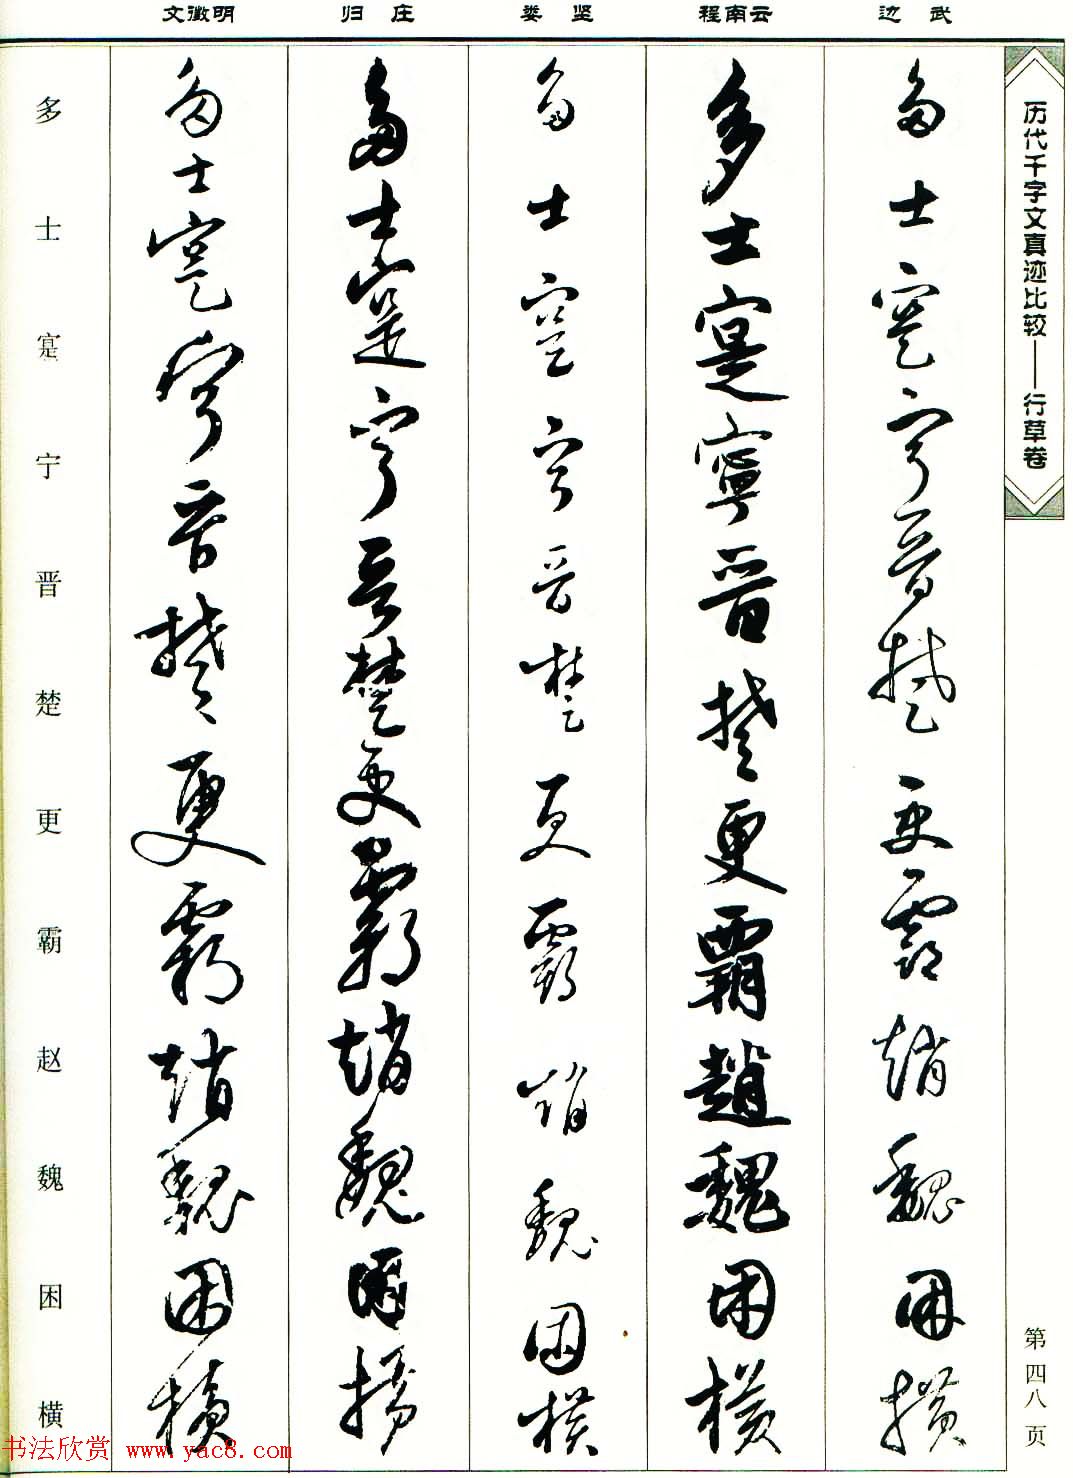 历代千字文真迹比较——行草卷
第四八页
边武
多士寔寧晋楚更霸趙魏困横
程南云
多士寔寧晋楚更霸趙魏困横
娄坚
多士寔寧晋楚更霸趙魏困横
归庄
多士寔寧晋楚更霸趙魏困横
文徵明
多士寔寧晋楚更霸趙魏困横
多士寔宁晋楚更霸赵魏困横
书法欣赏 www.yac8.com